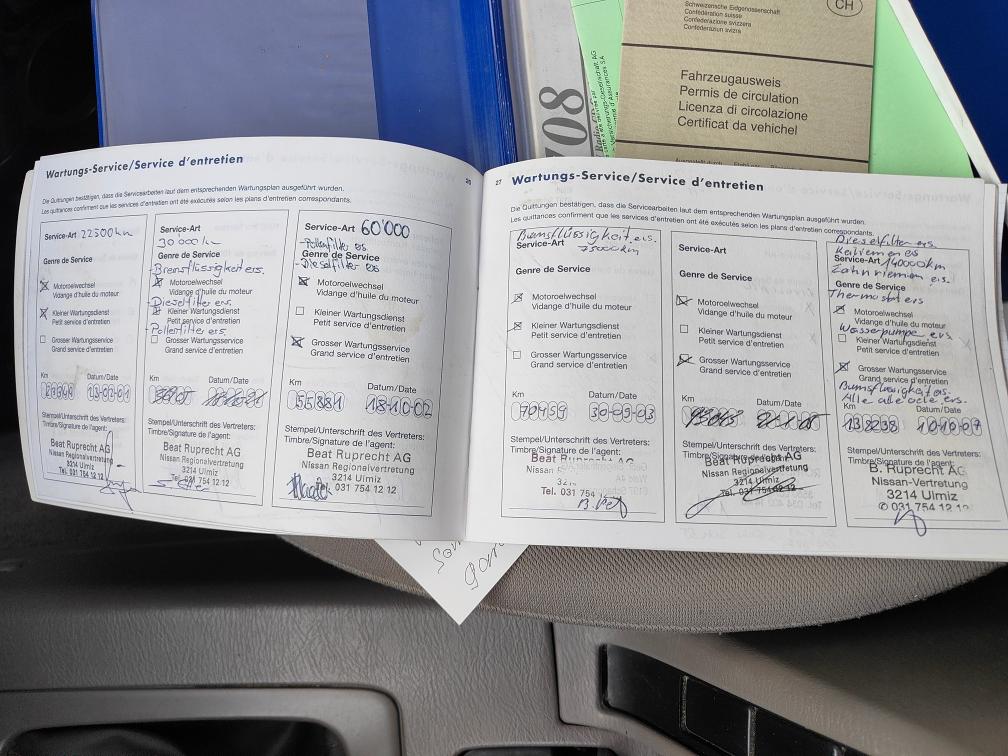 Schweizerische Eidgenossenschaft
Confédération suisse
Confederazione svizzera
Confederaziun svizra
CH
Fahrzeugausweis
Permis de circulation
Licenza di circolazione
Certificat da vehichel
708
Wartungs-Service/Service d'entretien
26
Die Quittungen bestätigen, dass die Servicearbeiten laut dem entsprechenden Wartungsplan ausgeführt wurden.
Les quittances confirment que les services d'entretien ont été exécutés selon les plans d'entretien correspondants.
Service-Art 22500 km
Genre de Service
Motoroelwechsel
Vidange d'huile du moteur
Kleiner Wartungsdienst
Petit service d'entretien
Grosser Wartungsservice
Grand service d'entretien
Km
Datum/Date
13-02-01
Stempel/Unterschrift des Vertreters:
Timbre/Signature de l'agent:
Beat Ruprecht AG
Nissan Regionalvertretung
3214 Ulmiz
Tel. 031 754 12 12
Service-Art
30'000 km
Genre de Service
-Bremsflüssigkeit ers.
Motoroelwechsel
Vidange d'huile du moteur
-Dieselfilter ers.
Kleiner Wartungsdienst
Petit service d'entretien
Pollenfilter ers.
Grosser Wartungsservice
Grand service d'entretien
Km
Datum/Date
Stempel/Unterschrift des Vertreters:
Timbre/Signature de l'agent:
Beat Ruprecht AG
Nissan Regionalvertretung
3214 Ulmiz
Tel. 031 754 12 12
Service-Art 60'000
-Pollenfilter es
Genre de Service
-Dieselfilter es
Motoroelwechsel
Vidange d'huile du moteur
Kleiner Wartungsdienst
Petit service d'entretien
Grosser Wartungsservice
Grand service d'entretien
Km
Datum/Date
55881
18-10-02
Stempel/Unterschrift des Vertreters:
Timbre/Signature de l'agent:
Beat Ruprecht AG
Nissan Regionalvertretung
3214 Ulmiz
Tel. 031 754 12 12
27
Wartungs-Service/Service d'entretien
Die Quittungen bestätigen, dass die Servicearbeiten laut dem entsprechenden Wartungsplan ausgeführt wurden.
Les quittances confirment que les services d'entretien ont été exécutés selon les plans d'entretien correspondants.
Bremsflüssigkeit ers.
Service-Art 75000km
Genre de Service
Motoroelwechsel
Vidange d'huile du moteur
Kleiner Wartungsdienst
Petit service d'entretien
Grosser Wartungsservice
Grand service d'entretien
Km
Datum/Date
70459
30-09-03
Stempel/Unterschrift des Vertreters:
Timbre/Signature de l'agent:
Beat Ruprecht AG
Nissan
Tel. 031 754
Service-Art
Genre de Service
Motoroelwechsel
Vidange d'huile du moteur
Kleiner Wartungsdienst
Petit service d'entretien
Grosser Wartungsservice
Grand service d'entretien
Km
Datum/Date
Stempel/Unterschrift des Vertreters:
Timbre/Signature de l'agent:
Beat Ruprecht AG
Nissan Regionalvertretung
3214 Ulmiz
Tel. 031 754 12 12
Dieselfilter ers.
Keilriemen es
Service-Art 140000km
Zahnriemen es.
Genre de Service
Thermostat ers
Motoroelwechsel
Vidange d'huile du moteur
Wasserpumpe ers
Kleiner Wartungsdienst
Petit service d'entretien
Grosser Wartungsservice
Grand service d'entretien
Bremsflüssigk. ers.
Km
Datum/Date
138238
10-10-07
Stempel/Unterschrift des Vertreters:
Timbre/Signature de l'agent:
B. Ruprecht AG
Nissan-Vertretung
3214 Ulmiz
✆ 031 754 12 12